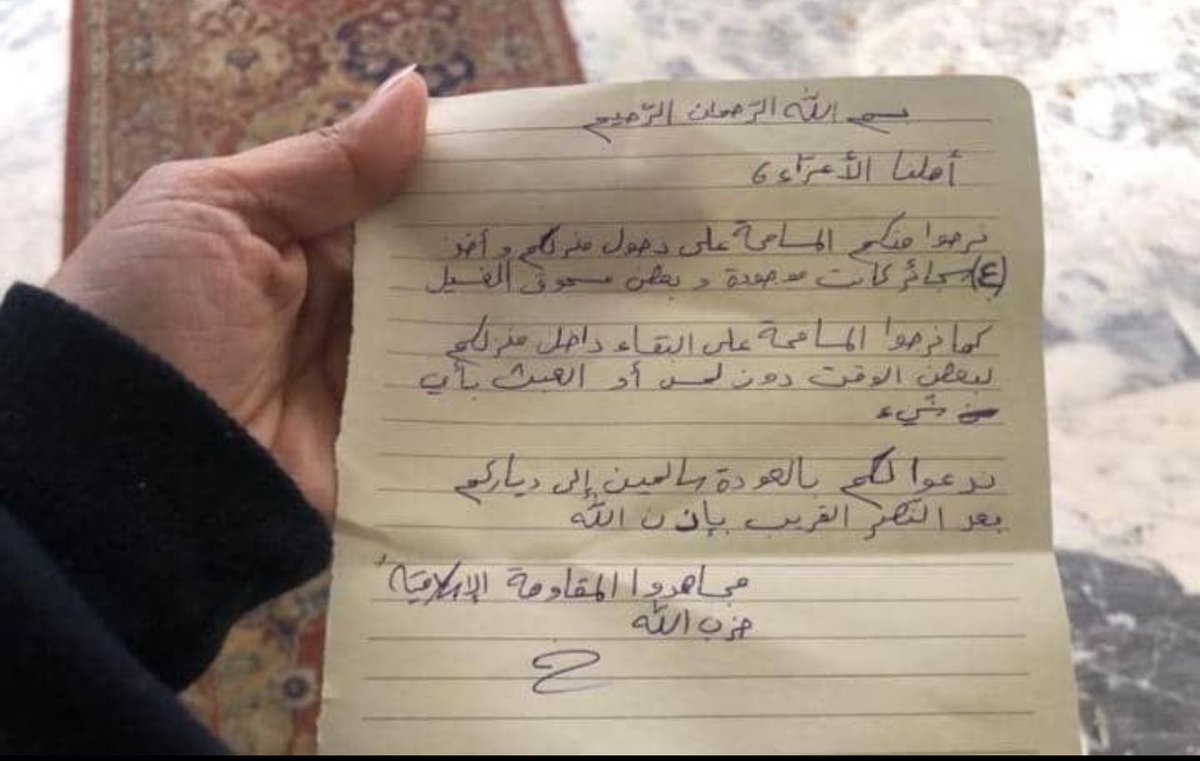 بسم الله الرحمان الرّحيم
أهلنا الأعزّاء،
نرجوا منكم المسامحة على دخول منزلكم وأخذ
(٤) سجائر كانت موجودة وبعض مسحوق الغسيل
كما نرجوا المسامحة على البقاء داخل منزلكم
لبعض الوقت دون لمس أو العبث بأي
شيء
ندعوا لكم بالعودة سالمين إلى دياركم
بعد النّصر القريب بإذن الله
مجاهدوا المقاومة الإسلاميّة
حزب الله